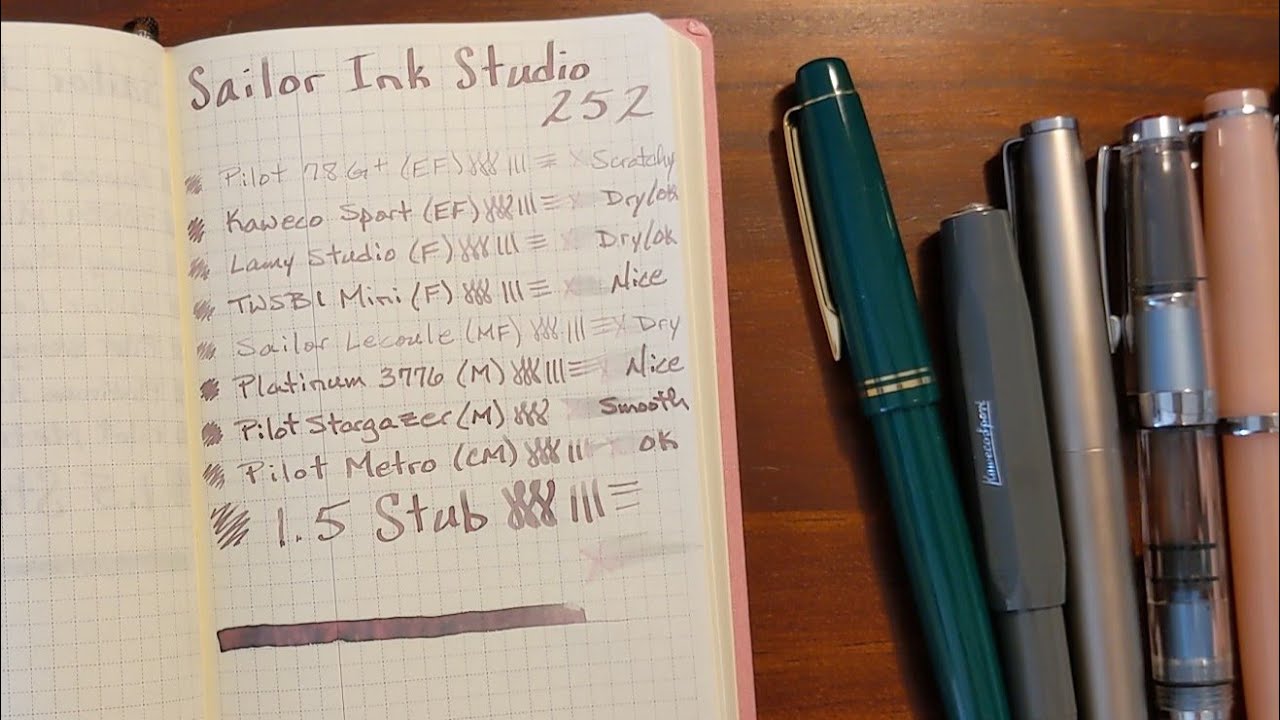 Sailor Ink Studio
252
Pilot 78G+ (EF) Scratchy
Kaweco Sport (EF) Dry/ok
Lamy Studio (F) Dry/ok
TWSBI Mini (F) Nice
Sailor Lecoule (MF) Dry
Platinum 3776 (M) Nice
Pilot Stargazer (M) Smooth
Pilot Metro (CM) ok
1.5 Stub
Kaweco Sport